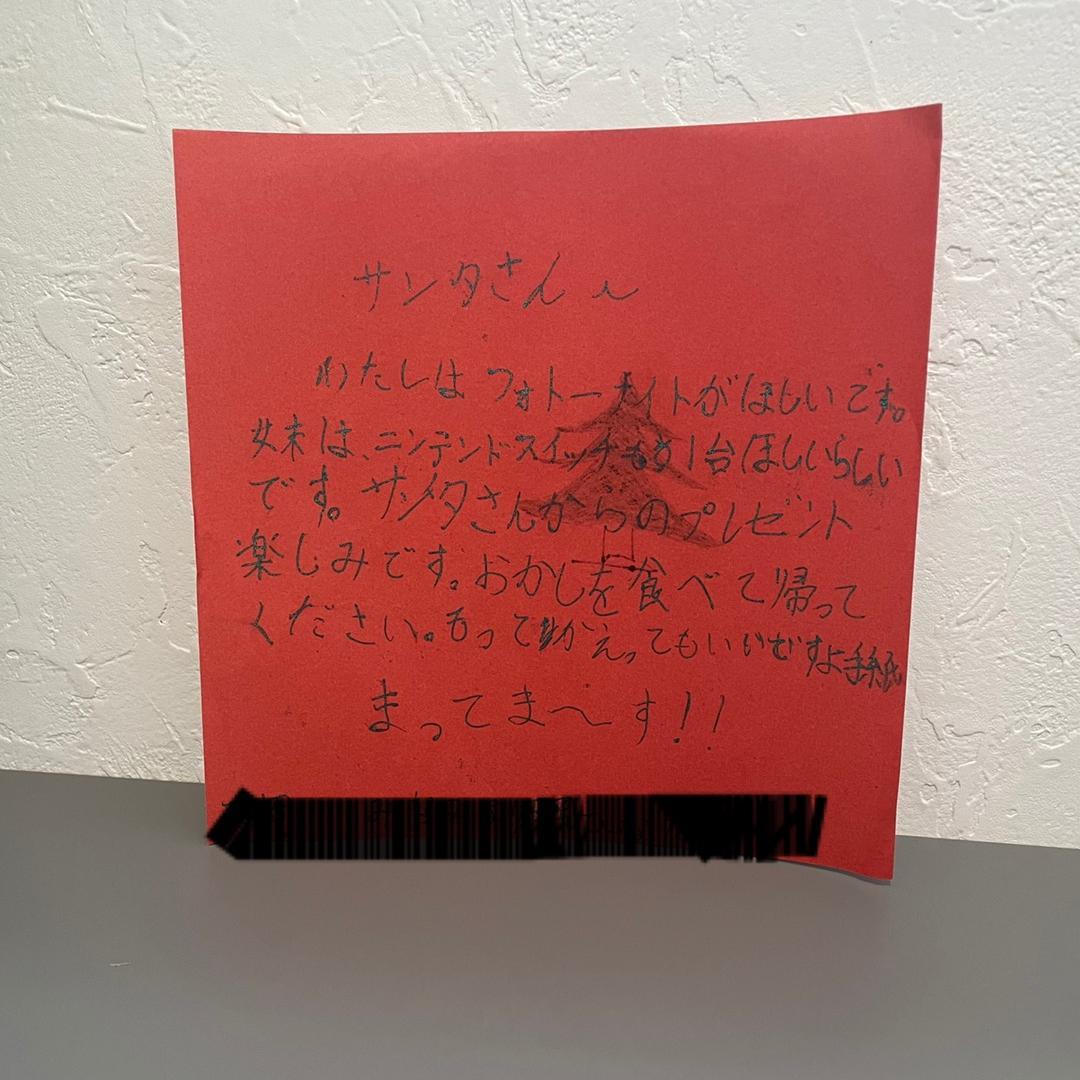 サンタさんへ
わたしはフォトーナイトがほしいです。
妹は、ニンテンドースイッチもう1台ほしいらしい
です。サンタさんからのプレゼント
楽しみです。おかしを食べて帰って
ください。もってかえってもいいですよ手紙
まってま〜す!!